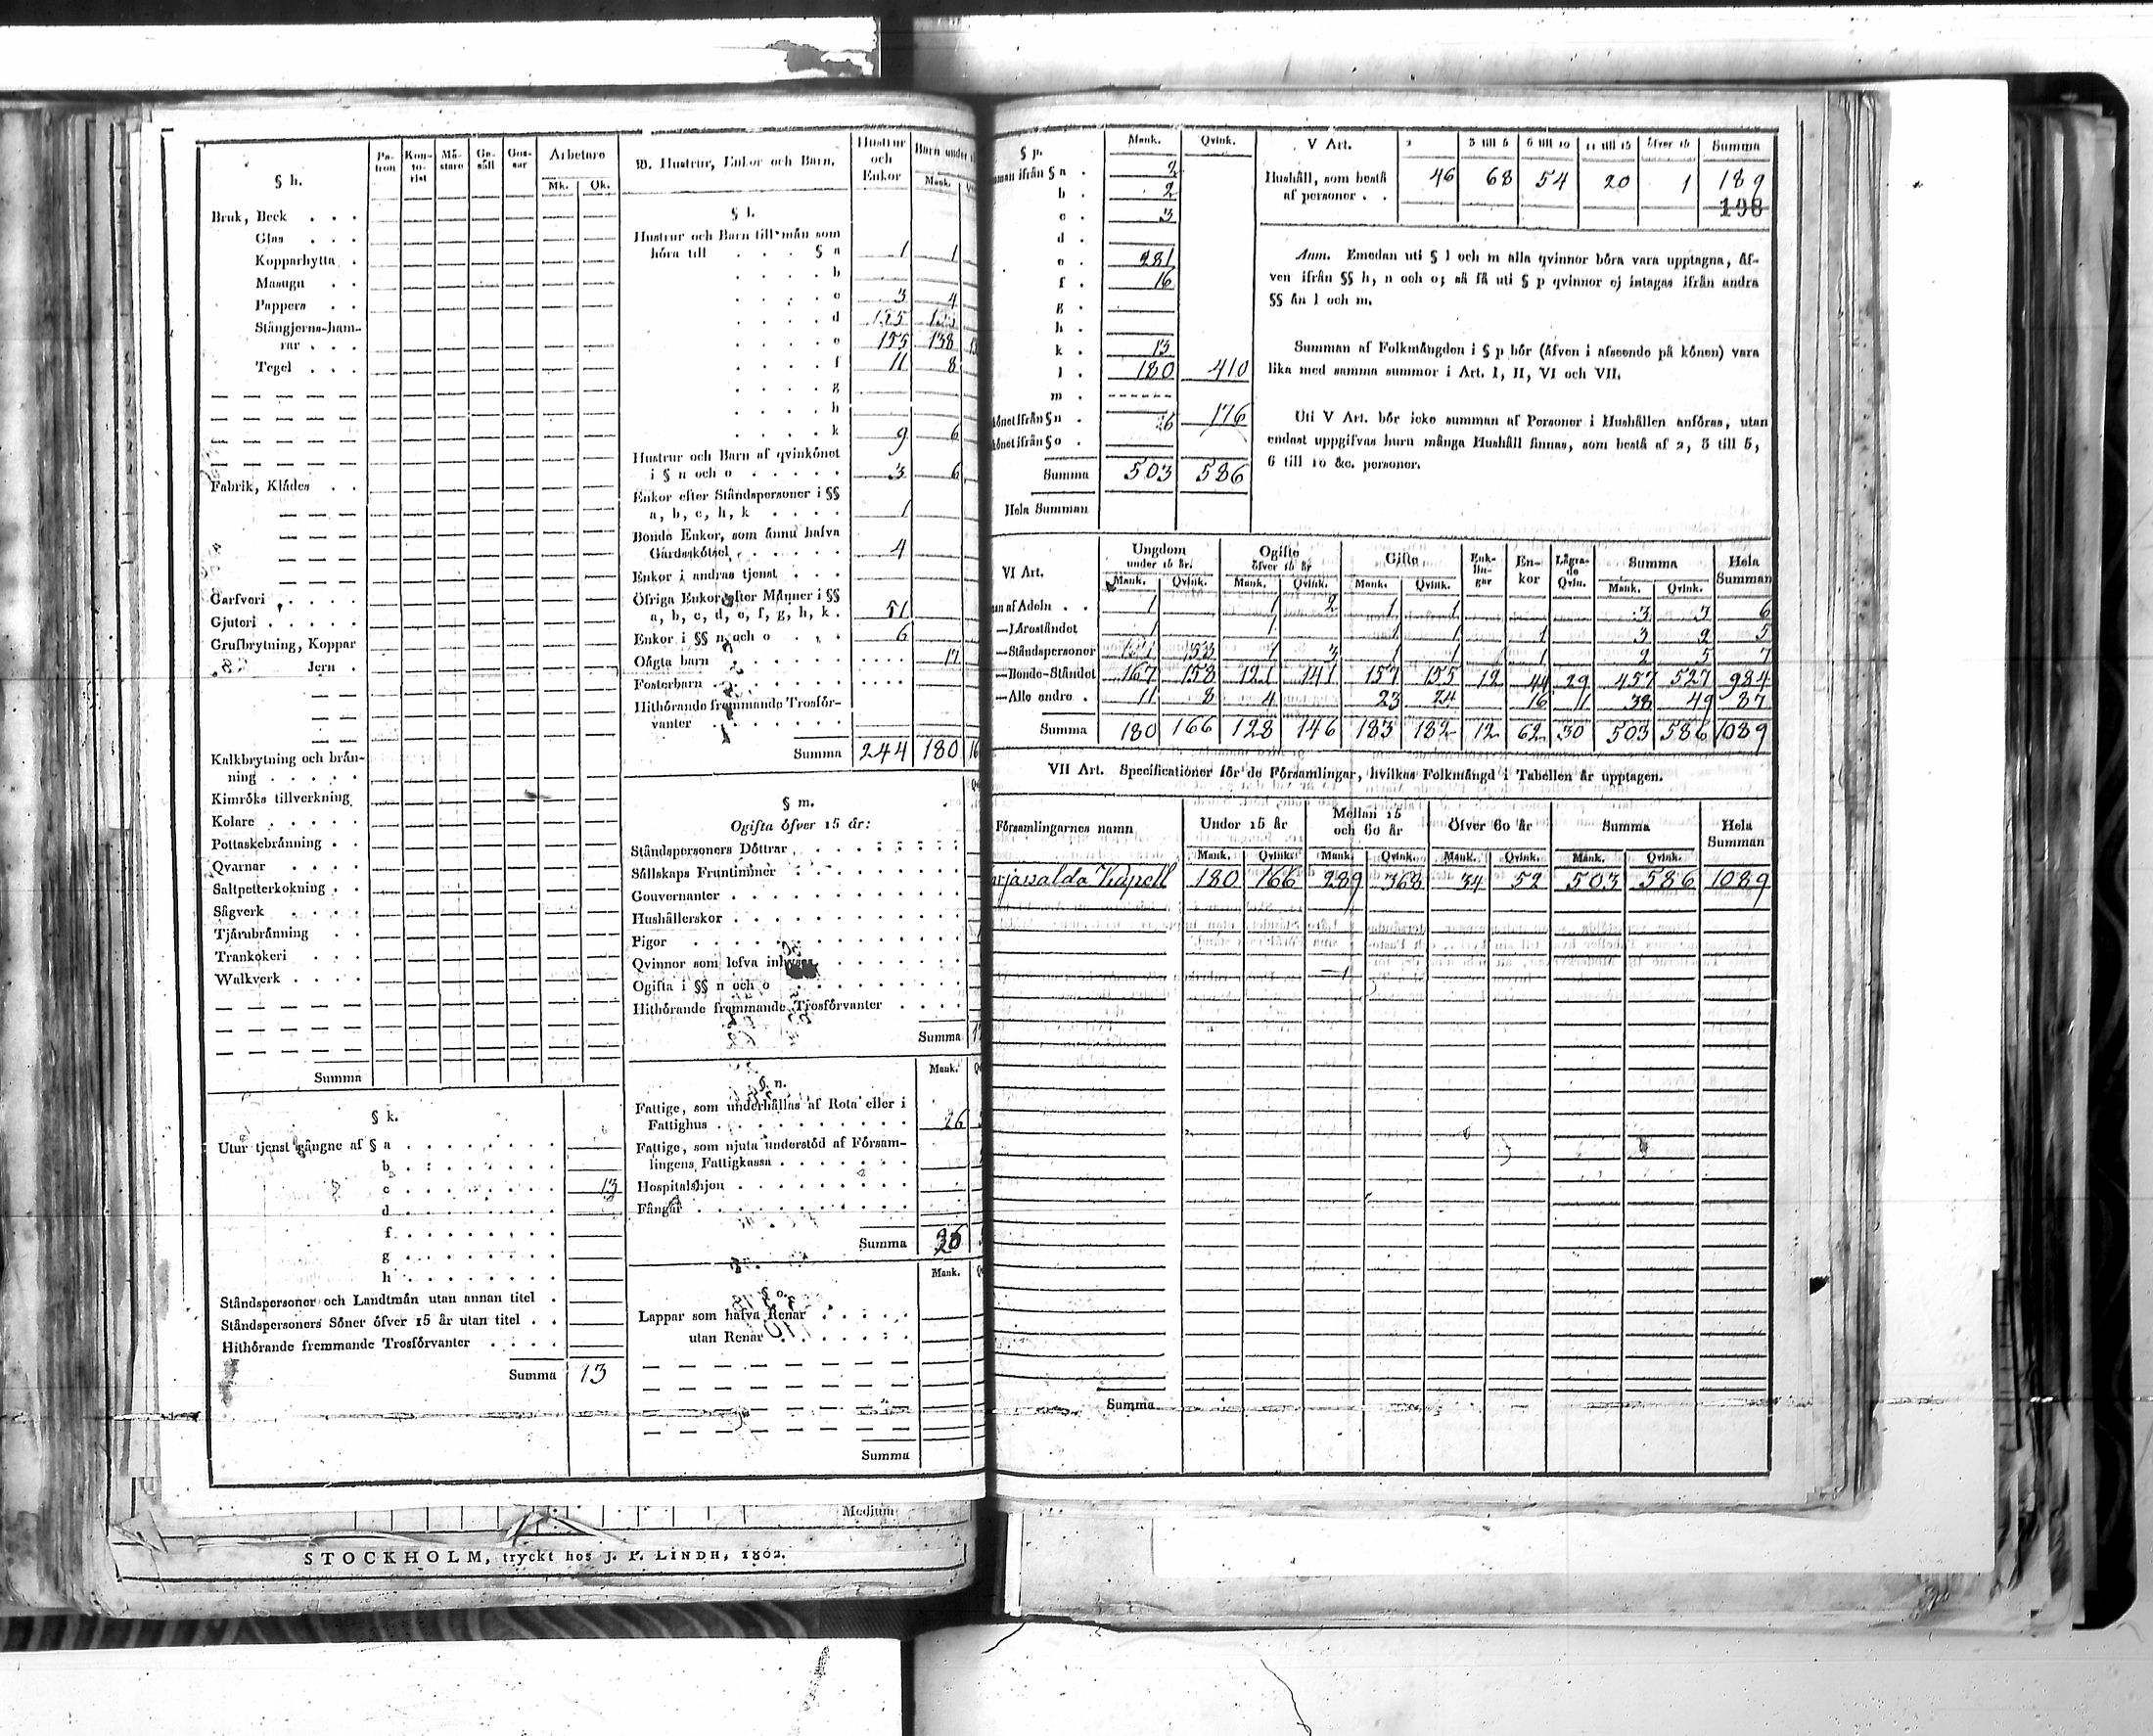 § h.
Pa-
tron
Kon-
to-
rist
Mä-
stare
Ge-
säll
Gos-
sar
Arbetare
Mk.
Qk.
Bruk, Beck . . .
Glas . . .
Kopparhytta .
Masugn . .
Pappers . .
Stångjerns-ham-
rar . . .
Tegel . . .
Fabrik, Klådes . .
Garfveri . . . .
Gjuteri . . . . .
Grufbrytning, Koppar
Jern .
Kalkbrytning och brån-
ning . . . . .
Kimröks tillverkning
Kolare . . . . .
Pottaskebrånning . .
Qvarnar . . . .
Saltpetterkokning . .
Sågverk . . . .
Tjårubrånning . .
Trankokeri . . .
Walkverk . . . .
Summa
§ k.
Utur tjenst gångne af § a . . . . . . .
b . . . . . . . .
c . . . . . . . . 13
d . . . . . . . .
f . . . . . . . .
g . . . . . . . .
h . . . . . . . .
Ståndspersoner och Landtmån utan annan titel .
Ståndspersoners Söner öfver 15 år utan titel . .
Hithörande fremmande Trosförvanter . . . .
Summa 13
B. Hustrur, Enkor och Barn.
Hustrur
och
Enkor
Barn under
Mank.
§ l.
Hustrur och Barn till mån som
höra till . . . § a 1 1
. . . . b
. . . . c 3 4
. . . . d
. . . . e 155 138
. . . . f 11 8
. . . . g
. . . . h
. . . . k 9 6
Hustrur och Barn af qvinkönet
i § n och o . . . . . 3 6
Enkor efter Ståndspersoner i §§
a, b, c, h, k . . . . 1
Bonde Enkor, som ånnu hafva
Gårdsskötsel . . . . . . 4
Enkor i andras tjenst . . .
Öfriga Enkor efter Månner i §§
a, b, c, d, e, f, g, h, k . 51
Enkor i §§ n och o . . . 6
Oågta barn . . . . . . . . . . . 17
Fosterbarn . . . . . . . . . . .
Hithörande fremmande Trosför-
vanter . . . . . . .
Summa 244 180
§ m.
Ogifta öfver 15 år:
Ståndspersoners Döttrar . . . . . . .
Sållskaps Fruntimmer . . . . . . . .
Gouvernanter . . . . . . . . . . .
Hushållerskor . . . . . . . . . . .
Pigor . . . . . . . . . . . . .
Qvinnor som lefva inhyses . . . . . . .
Ogifta i §§ n och o . . . . . . . .
Hithörande fremmande Trosförvanter . . . .
Summa
Mank.
§ n.
Fattige, som underhållas af Rota eller i
Fattighus . . . . . . . . . . 26
Fattige, som njuta understöd af Försam-
lingens Fattigkassa . . . . . . .
Hospitalshjon . . . . . . . . .
Fångar . . . . . . . . . . .
Summa 26
Mank.
§ o.
Lappar som hafva Renar . . . . .
utan Renar . . . . .
Summa
Medium
STOCKHOLM, tryckt hos J. P. LINDH, 1802.
§ p. Mank. Qvink.
ifrån § a . 2
b . 2
c . 3
d .
e . 281
f . 16
g .
h .
k . 13
l . 180 410
m . - - - - - -
könet ifrån § n . 176
könet ifrån § o .
Summa 503 586
Hela Summan
V Art. 2 3 till 5 6 till 10 11 till 15 öfver 15 Summa
Hushåll, som bestå 46 68 54 20 1 189
af personer . . 198
Anm. Emedan uti § l och m alla qvinnor böra vara upptagna, åf-
ven ifrån §§ h, n och o; så få uti § p qvinnor ej intagas ifrån andra
§§ ån l och m.
Summan af Folkmångden i § p bör (åfven i afseende på könen) vara
lika med samma summor i Art. I, II, VI och VII.
Uti V Art. bör icke summan af Personer i Hushållen anföras, utan
endast uppgifvas huru många Hushåll finnas, som bestå af 2, 3 till 5,
6 till 10 &c. personer.
VI Art.
Ungdom
under 15 år.
Ogifte
öfver 15 år
Gifte
Enk-
lin-
gar
En-
kor
Lågra-
de
Qvin.
Summa
Hela
Summan
Mank. Qvink. Mank. Qvink. Mank. Qvink. Mank. Qvink.
af Adeln . . 1 1 2 1 1 3 3 6
—Låroståndet 1 1 1 1 1 3 2 5
—Ståndspersoner 1 3 1 1 1 1 2 5 7
—Bonde-Ståndet 167 158 121 141 157 155 12 44 29 457 527 984
—Alle andre . 11 8 4 23 24 16 11 38 49 87
Summa 180 166 128 146 183 182 12 62 30 503 586 1089
VII Art. Specificationer för de Församlingar, hvilkas Folkmångd i Tabellen år upptagen.
Församlingarnes namn
Under 15 år
Mellan 15
och 60 år
Öfver 60 år
Summa
Hela
Summan
Mank. Qvink. Mank. Qvink. Mank. Qvink. Mank. Qvink.
Kapell 180 166 289 368 34 52 503 586 1089
Summa